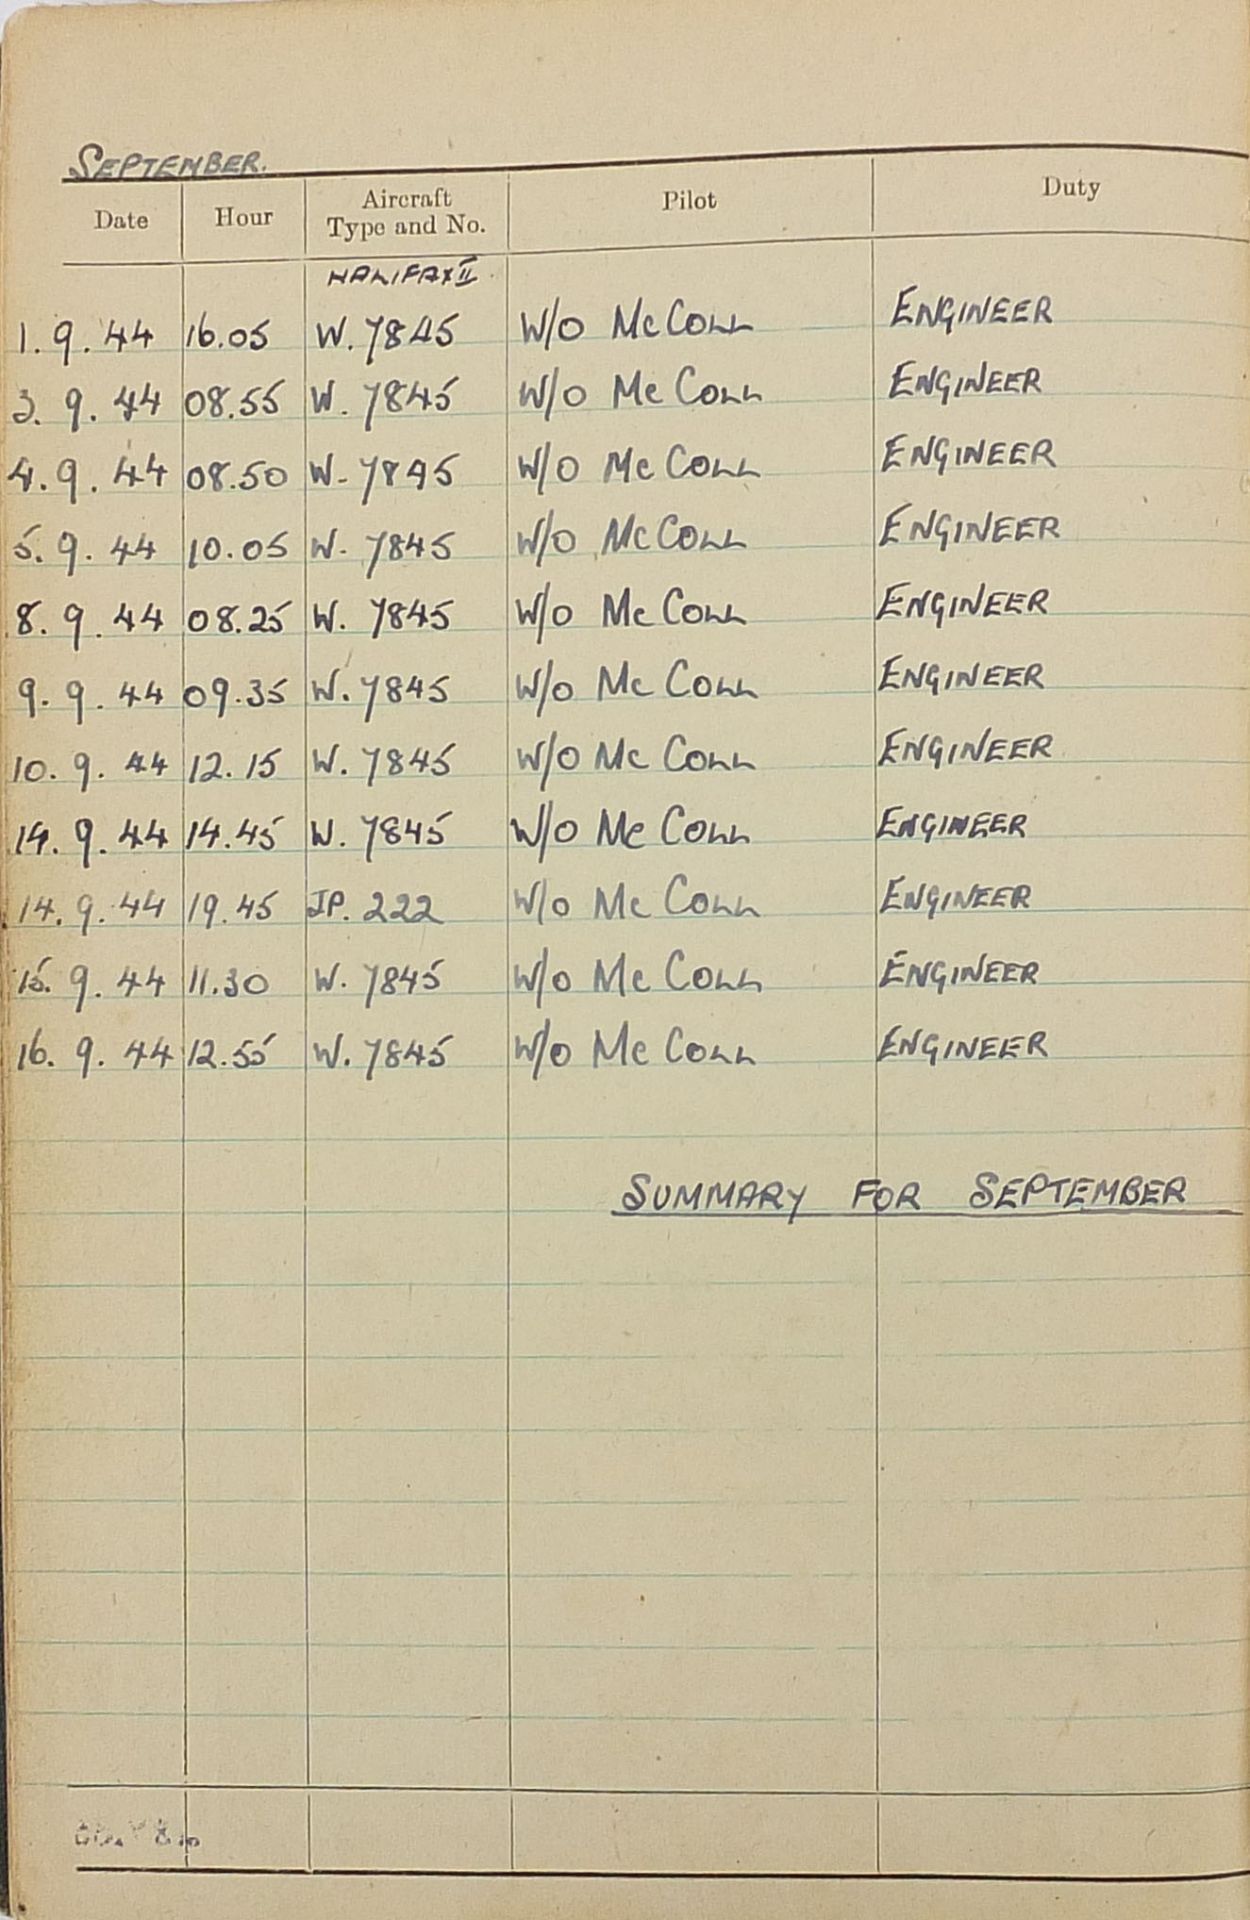 SEPTEMBER.
Date Hour Aircraft Type and No. Pilot Duty
HALIFAX II
1.9.44 16.05 W.7845 W/O McColl ENGINEER
3.9.44 08.55 W.7845 W/O McColl ENGINEER
4.9.44 08.50 W-7845 W/O McColl ENGINEER
5.9.44 10.05 W-7845 W/O McColl ENGINEER
8.9.44 08.25 W.7845 W/O McColl ENGINEER
9.9.44 09.35 W.7845 W/O McColl ENGINEER
10.9.44 12.15 W.7845 W/O McColl ENGINEER
14.9.44 14.45 W.7845 W/O McColl ENGINEER
14.9.44 19.45 JP.222 W/O McColl ENGINEER
15.9.44 11.30 W.7845 W/O McColl ENGINEER
16.9.44 12.55 W.7845 W/O McColl ENGINEER
SUMMARY FOR SEPTEMBER